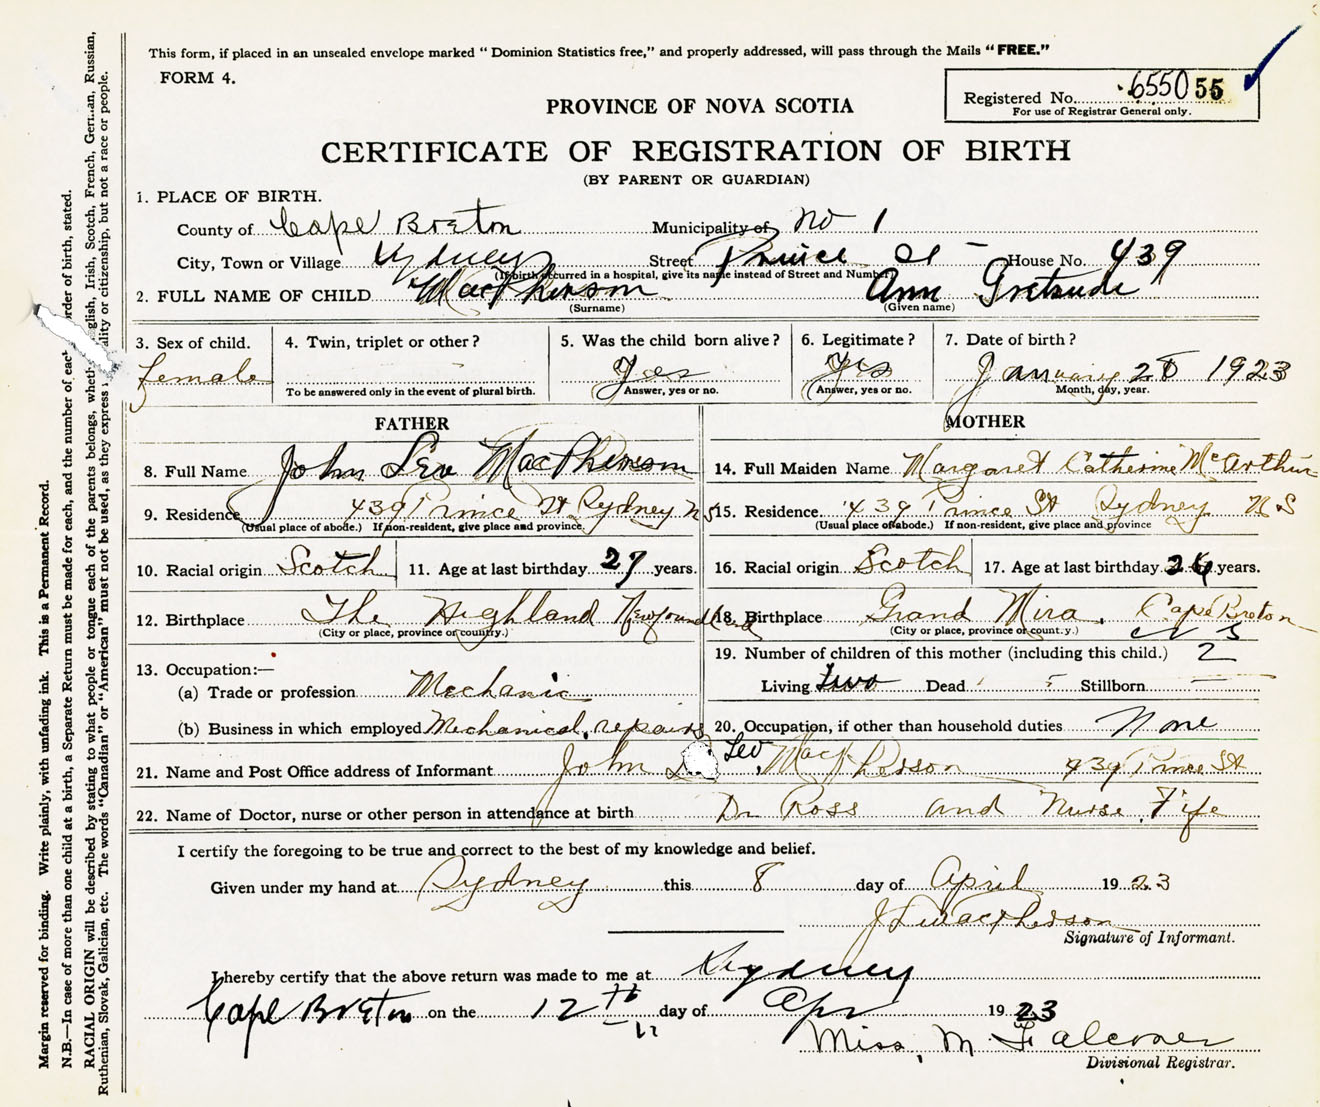 This form, if placed in an unsealed envelope marked "Dominion Statistics free," and properly addressed, will pass through the Mails "FREE."
FORM 4.
Registered No. 655055
For use of Registrar General only.
PROVINCE OF NOVA SCOTIA
CERTIFICATE OF REGISTRATION OF BIRTH
(BY PARENT OR GUARDIAN)
1. PLACE OF BIRTH.
County of Cape Breton Municipality of No 1
City, Town or Village Sydney Street Prince St - House No. 439
(If birth occurred in a hospital, give its name instead of Street and Number)
2. FULL NAME OF CHILD MacPherson Ann Gretrude
(Surname) (Given name)
3. Sex of child. 4. Twin, triplet or other? 5. Was the child born alive? 6. Legitimate? 7. Date of birth?
female Yes Yes January 28 1923
To be answered only in the event of plural birth. Answer, yes or no. (Answer, yes or no. Month, day, year.
FATHER MOTHER
8. Full Name John Leo MacPherson 14. Full Maiden Name Margaret Catherine McArthur
9. Residence 439 Prince St Sydney NS 15. Residence 439 Prince St Sydney NS
(Usual place of abode.) If non-resident, give place and province. (Usual place of abode.) If non-resident, give place and province
10. Racial origin Scotch 11. Age at last birthday 27 years. 16. Racial origin Scotch 17. Age at last birthday years.
12. Birthplace The Highland Newfoundland 18. Birthplace Grand Mira, Cape Breton
(City or place, province or country.) (City or place, province or country.) NS
13. Occupation:— 19. Number of children of this mother (including this child.) 2
(a) Trade or profession Mechanic Living two Dead Stillborn
(b) Business in which employed Mechanical repairs 20. Occupation, if other than household duties None
21. Name and Post Office address of Informant John Leo MacPherson 439 Prince St
22. Name of Doctor, nurse or other person in attendance at birth Dr Ross and Nurse Fife
I certify the foregoing to be true and correct to the best of my knowledge and belief.
Given under my hand at Sydney this 8 day of April 1923
J L MacPherson
Signature of Informant.
I hereby certify that the above return was made to me at Sydney
Cape Breton on the 12th day of Apr 1923
Miss. M Falconer
Divisional Registrar.
Margin reserved for binding. Write plainly, with unfading ink. This is a Permanent Record.
N.B.—In case of more than one child at a birth, a Separate Return must be made for each, and the number of each order of birth, stated.
RACIAL ORIGIN will be described by stating to what people or tongue each of the parents belongs, whether English, Irish, Scotch, French, German, Russian,
Ruthenian, Slovak, Galician, etc. The words "Canadian" or "American" must not be used, as they express ality or citizenship, but not a race or people.